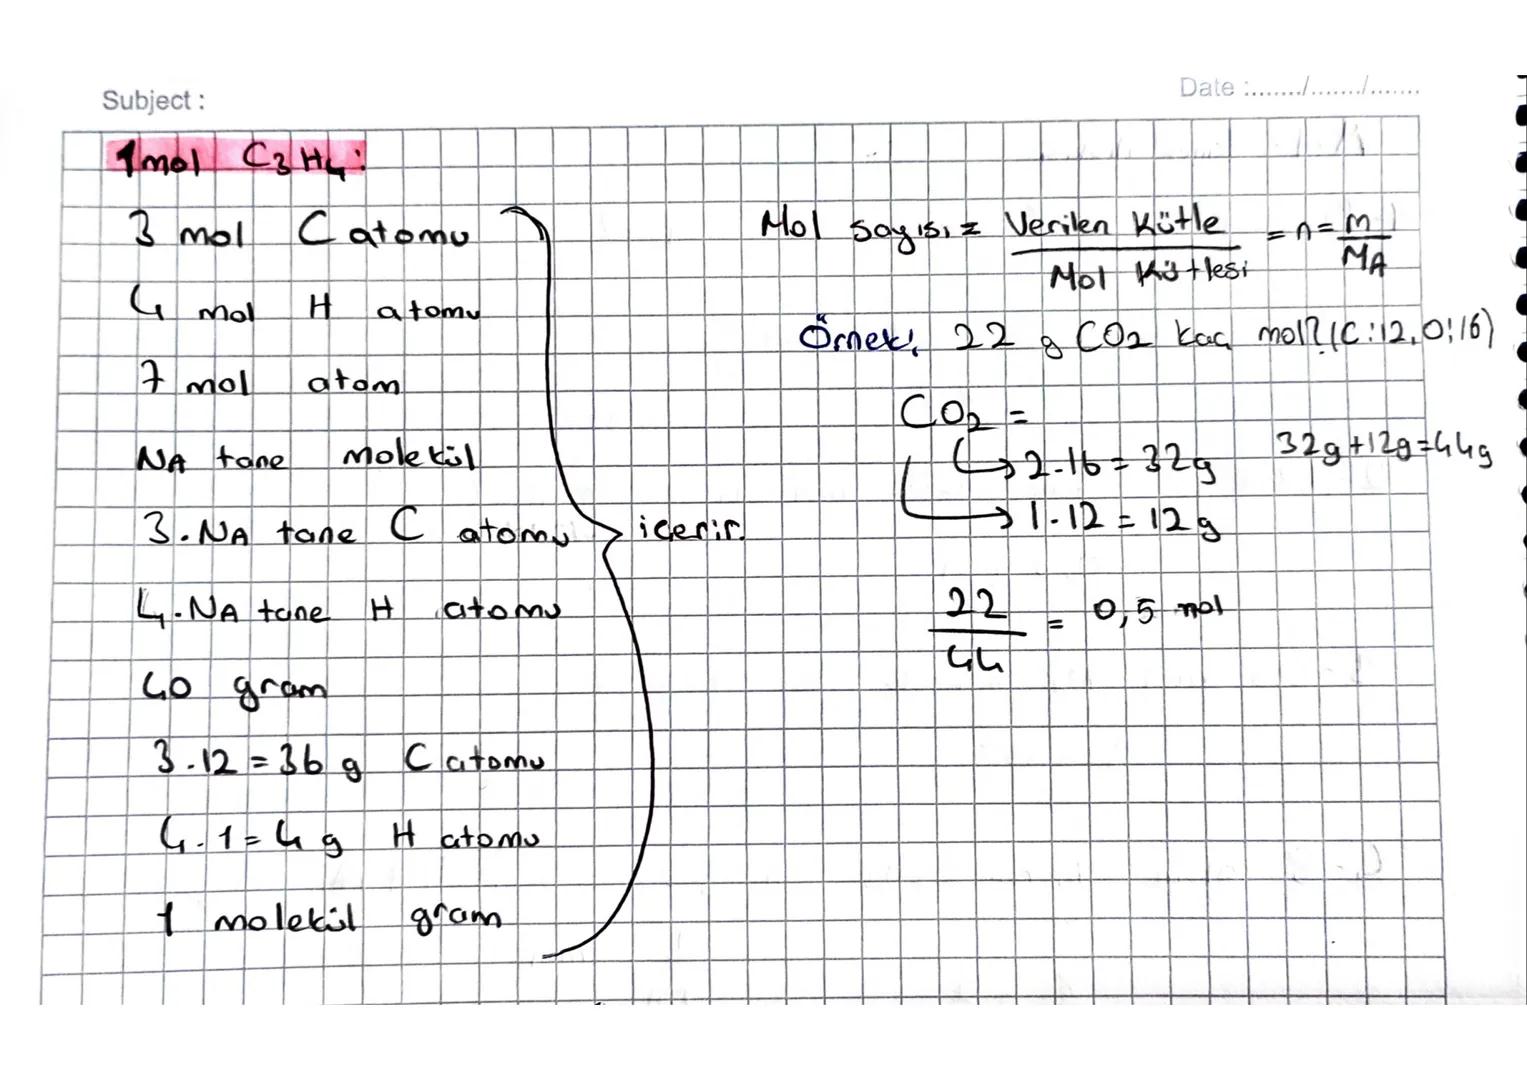 Subject :
Date :......../......../........
1mol C3H4:
3 mol C atomu
4 mol H atomu
7 mol atom
NA tane molekül
3.NA tane C atomu
4.NA tane H atomu
40 gram
3.12=36 g C atomu
4.1=4 g H atomu
1 molekül gram
içerir.
Mol sayısı = Verilen Kütle / Mol Kütlesi = n = m / MA
Örnek: 22 g CO2 kaç mol? (C:12, O:16)
CO2 =
2.16 = 32g
32g+12g=44g
1.12 = 12g
22 / 44 = 0,5 mol